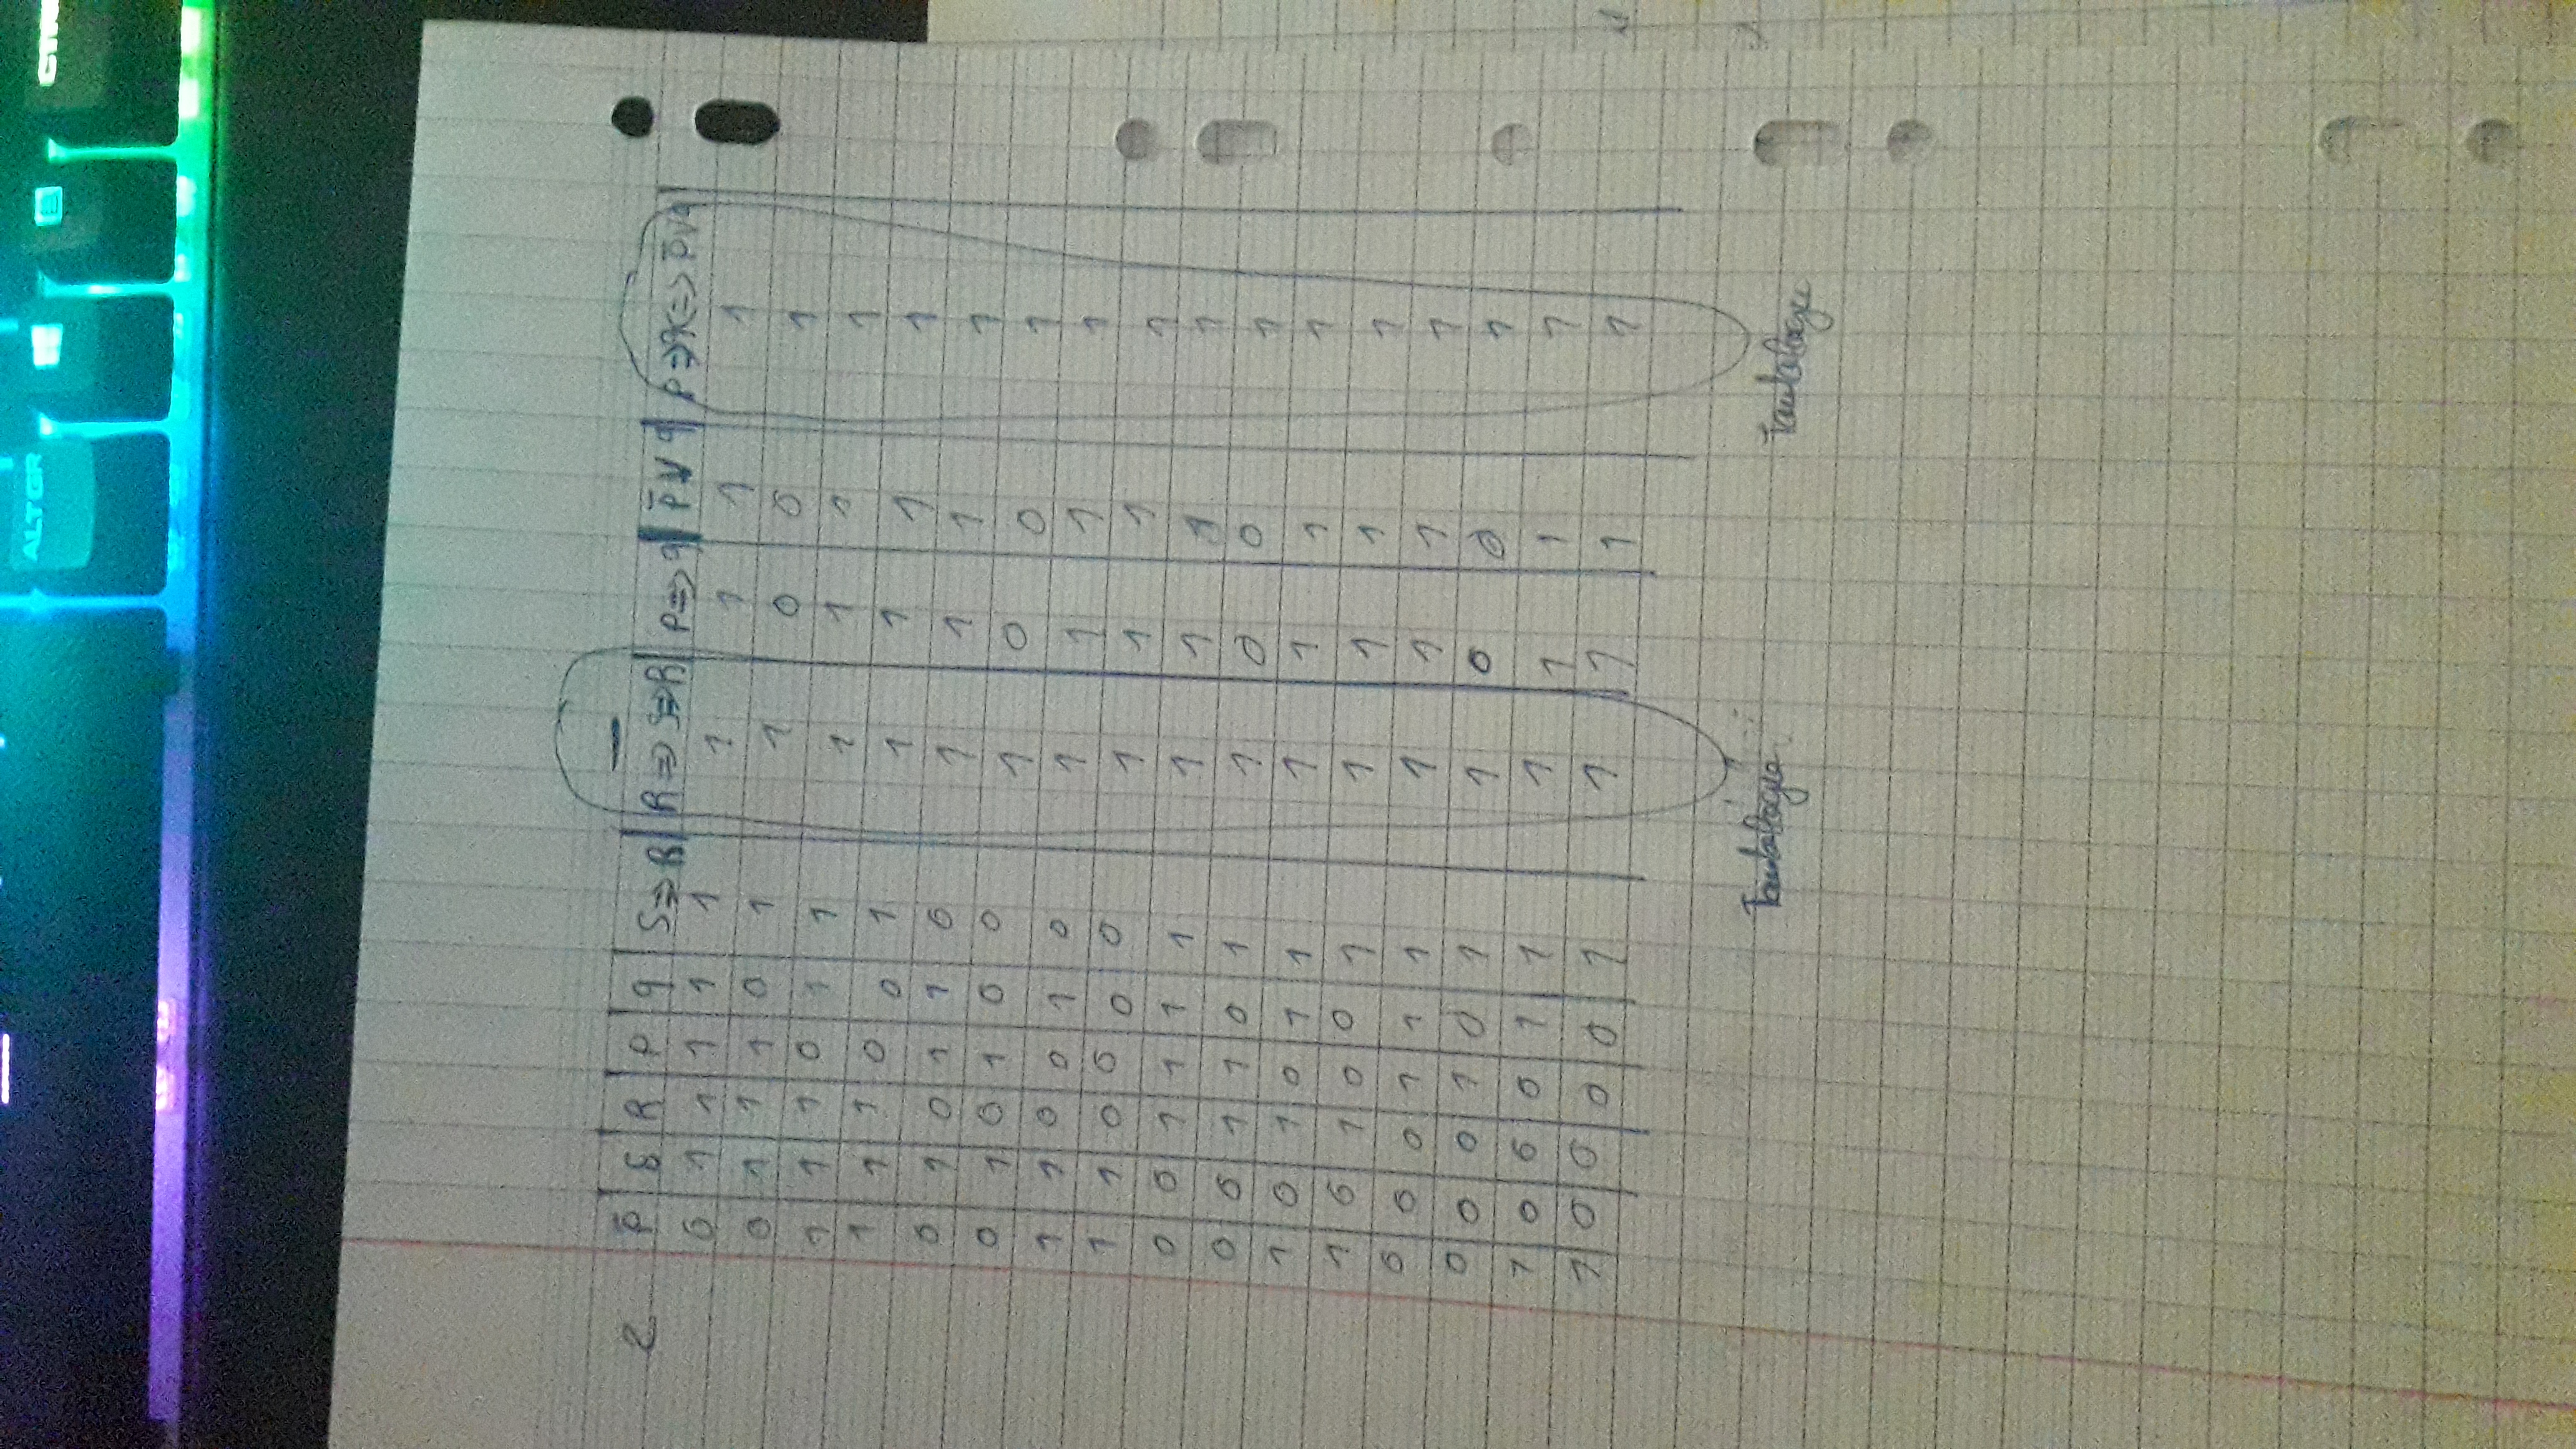 ALTGR
2 P̄ S R P q S⇒R R⇒S⇒R P⇒q P̄∨q P⇒q<=>P̄∨q
0 1 1 1 1 1 1 1 1 1
0 1 1 1 0 1 1 0 0 1
1 1 1 0 1 1 1 1 1 1
1 1 1 0 0 1 1 1 1 1
0 1 0 1 1 0 1 1 1 1
0 1 0 1 0 0 1 0 0 1
1 1 0 0 1 0 1 1 1 1
1 1 0 0 0 0 1 1 1 1
0 0 1 1 1 1 1 1 1 1
0 0 1 1 0 1 1 0 0 1
1 0 1 0 1 1 1 1 1 1
1 0 1 0 0 1 1 1 1 1
0 0 0 1 1 1 1 1 1 1
0 0 0 1 0 1 1 0 0 1
1 0 0 0 1 1 1 1 1 1
1 0 0 0 0 1 1 1 1 1
Tautologie Tautologie